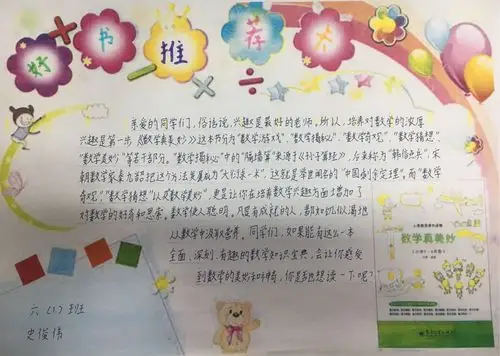 好书推荐卡
亲爱的同学们，俗话说，兴趣是最好的老师。所以，培养对数学的浓厚
兴趣是第一步。《数学真美妙》这本书分为"数学游戏"、"数学揭秘"、"数学奇观"、"数学猜想"、
"数学美妙"等若干部分。"数学揭秘"中的"隔墙算"来源于《孙子算经》，后来称为"韩信点兵"，宋
朝数学家秦九韶把这个方法发展成为"大衍求一术"，这就是举世闻名的"中国剩余定理"。而"数学
奇观"、"数学猜想"以及"数学美妙"，更是让你在培养数学兴趣方面增加了
对数学的好奇和思索。数学使人聪明，凡是有成就的人，都如饥似渴地
从数学中汲取营养。同学们，如果能有这么一本
全面、深刻、有趣的数学知识宝典，会让你感受
到数学的美妙和神奇，你是否也想读一下呢？
六（1）班
史俊伟
数学真美妙